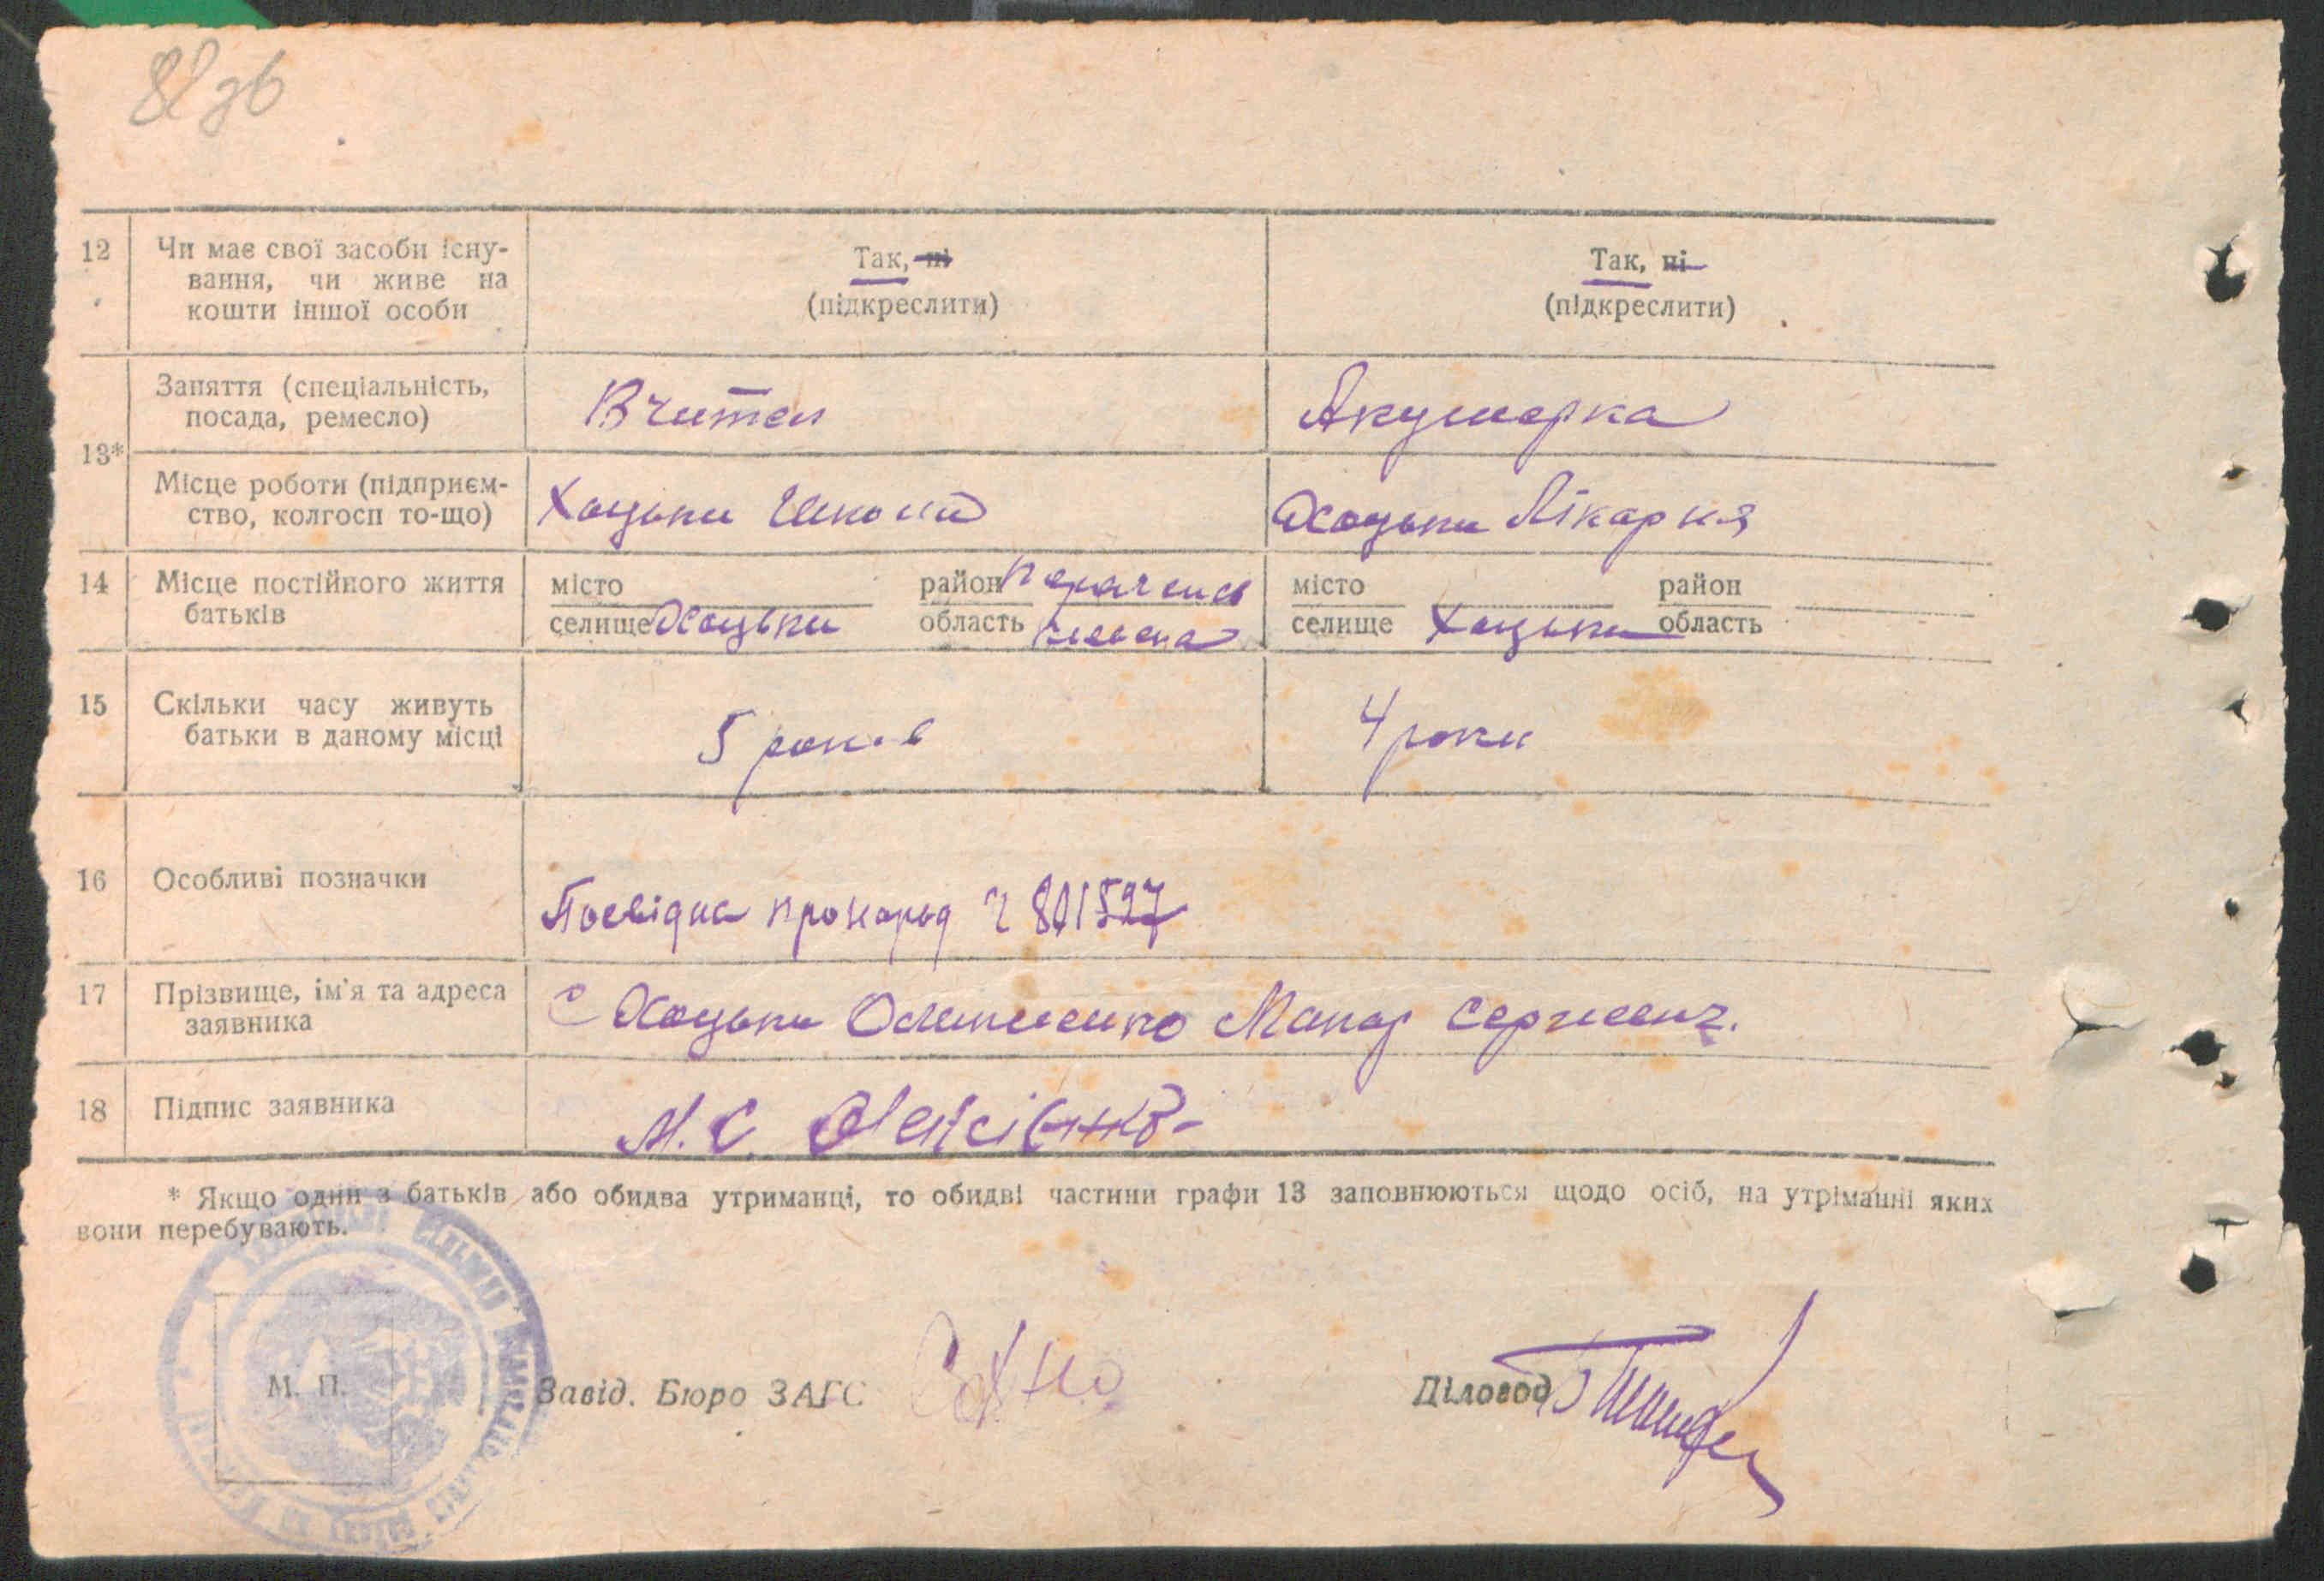 82 зв
12 Чи має свої засоби існу-
вання, чи живе на
кошти іншої особи
Так, ні
(підкреслити)
Так, ні
(підкреслити)
13*
Заняття (спеціальність,
посада, ремесло)
Вчител
Акушерка
Місце роботи (підприєм-
ство, колгосп то-що)
Хоцьки Школи
Хоцьки Лікарня
14 Місце постійного життя
батьків
місто
селище Хоцьки
район
область Київська
місто
селище Хоцьки
район
область
15 Скільки часу живуть
батьки в даному місці
5 років
4 роки
16 Особливі позначки
Посвідка про народ Ч 801527
17 Прізвище, ім'я та адреса
заявника
с Хоцьки Олексієнко Макар Сергиевич.
18 Підпис заявника
М. С. Олексієнко
* Якщо один з батьків або обидва утриманці, то обидві частини графи 13 заповнюються щодо осіб, на утріманні яких
вони перебувають.
М. П.
Завід. Бюро ЗАГС
Діловод